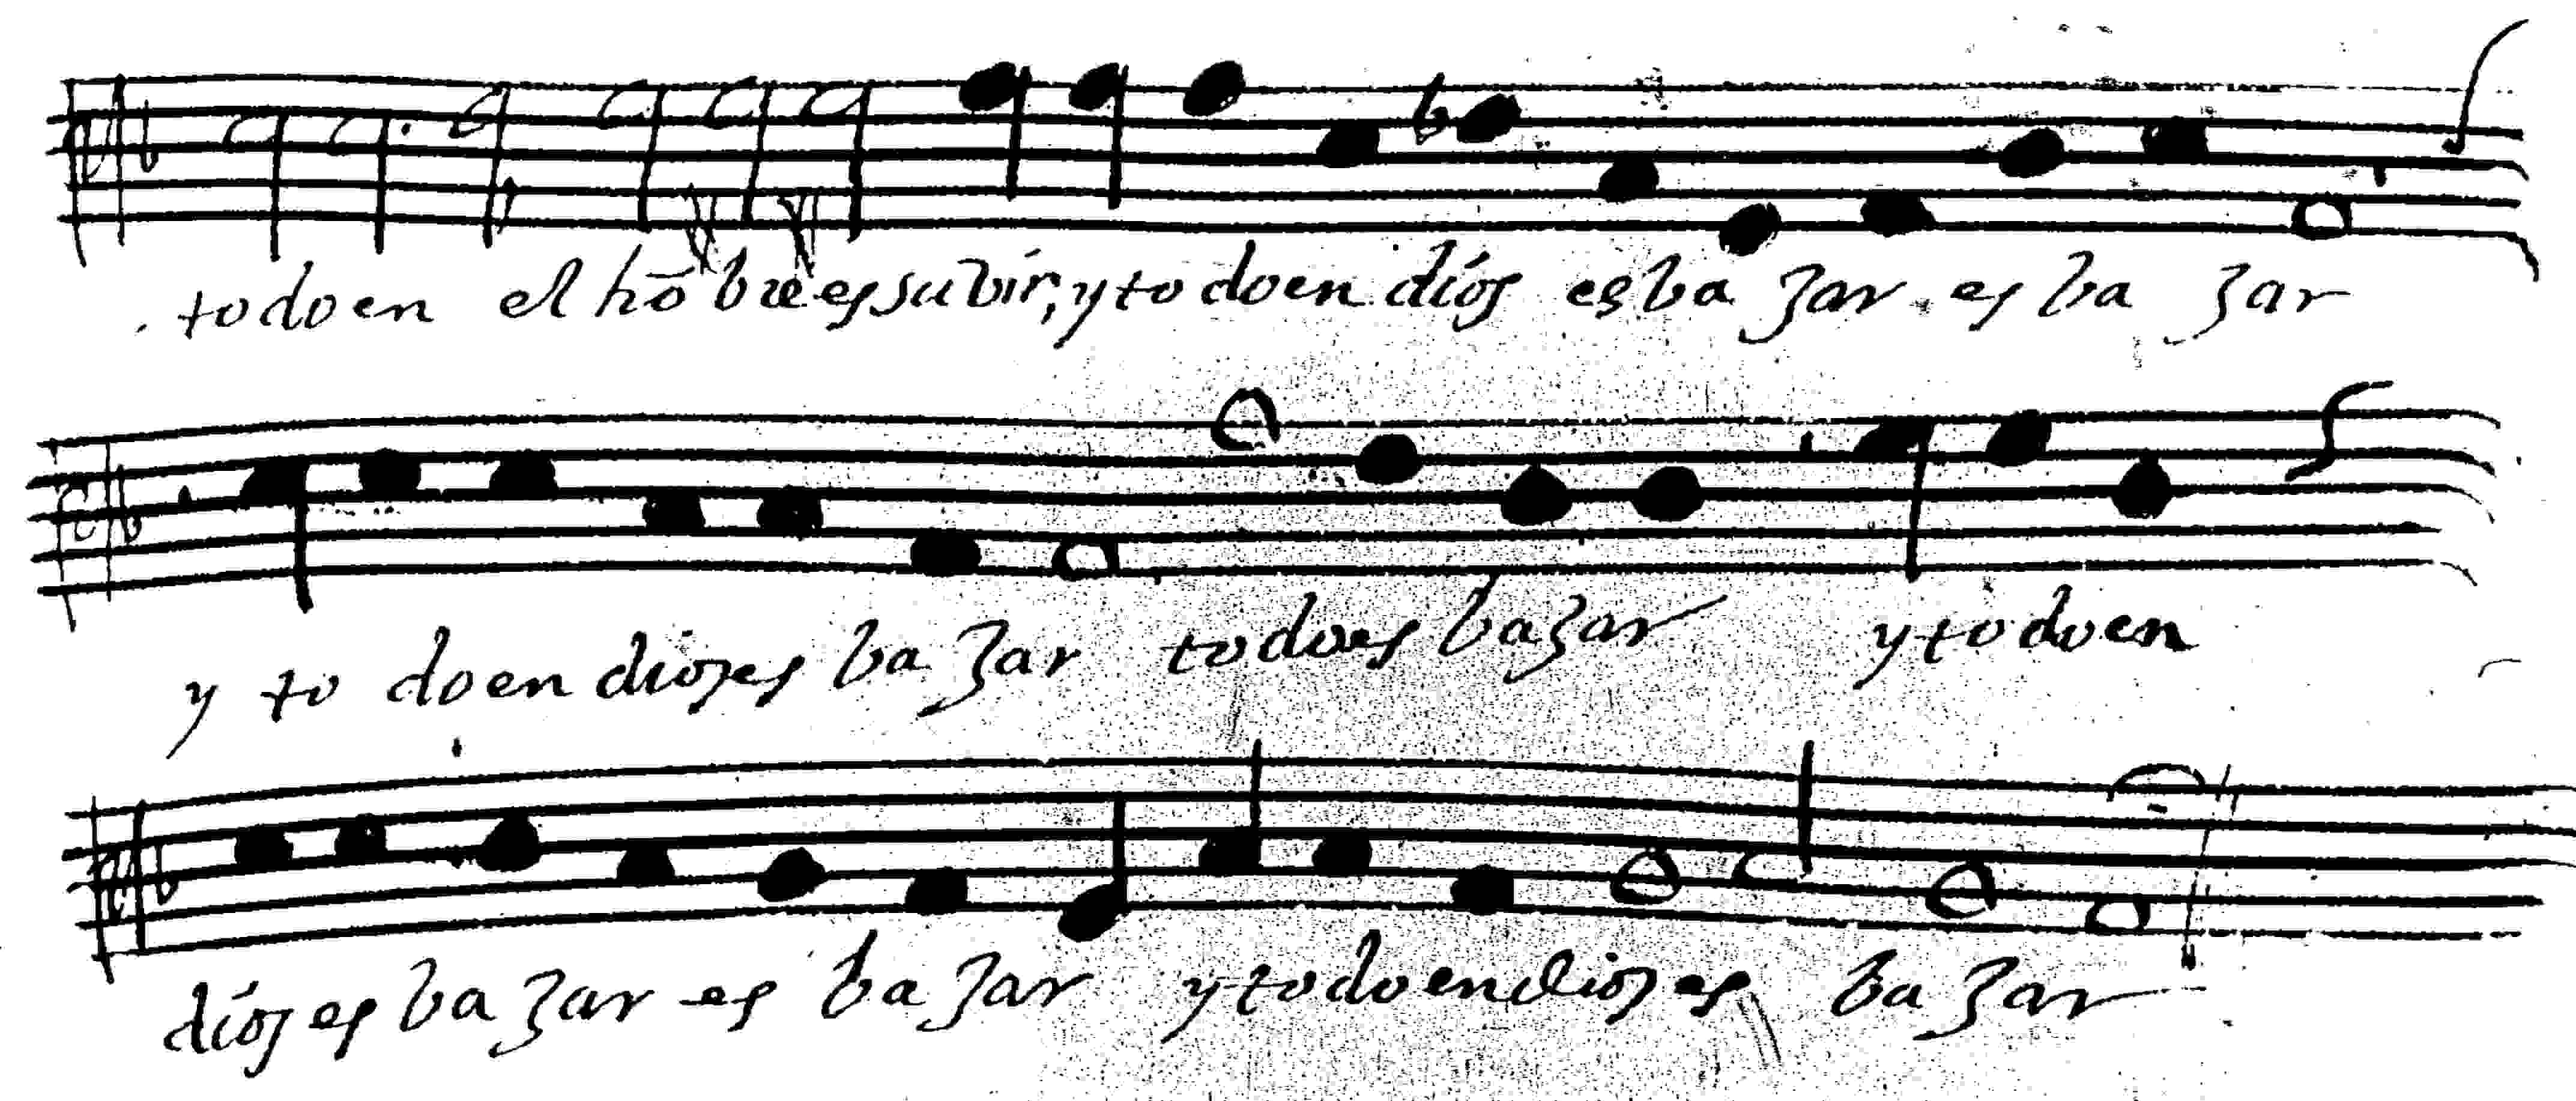 todo en el hō bre es subir, y todo en diós es ba zar es ba zar
y to do en dios es ba zar todo es bazar y todo en
diós es ba zar es ba zar y todo en dios es ba zar